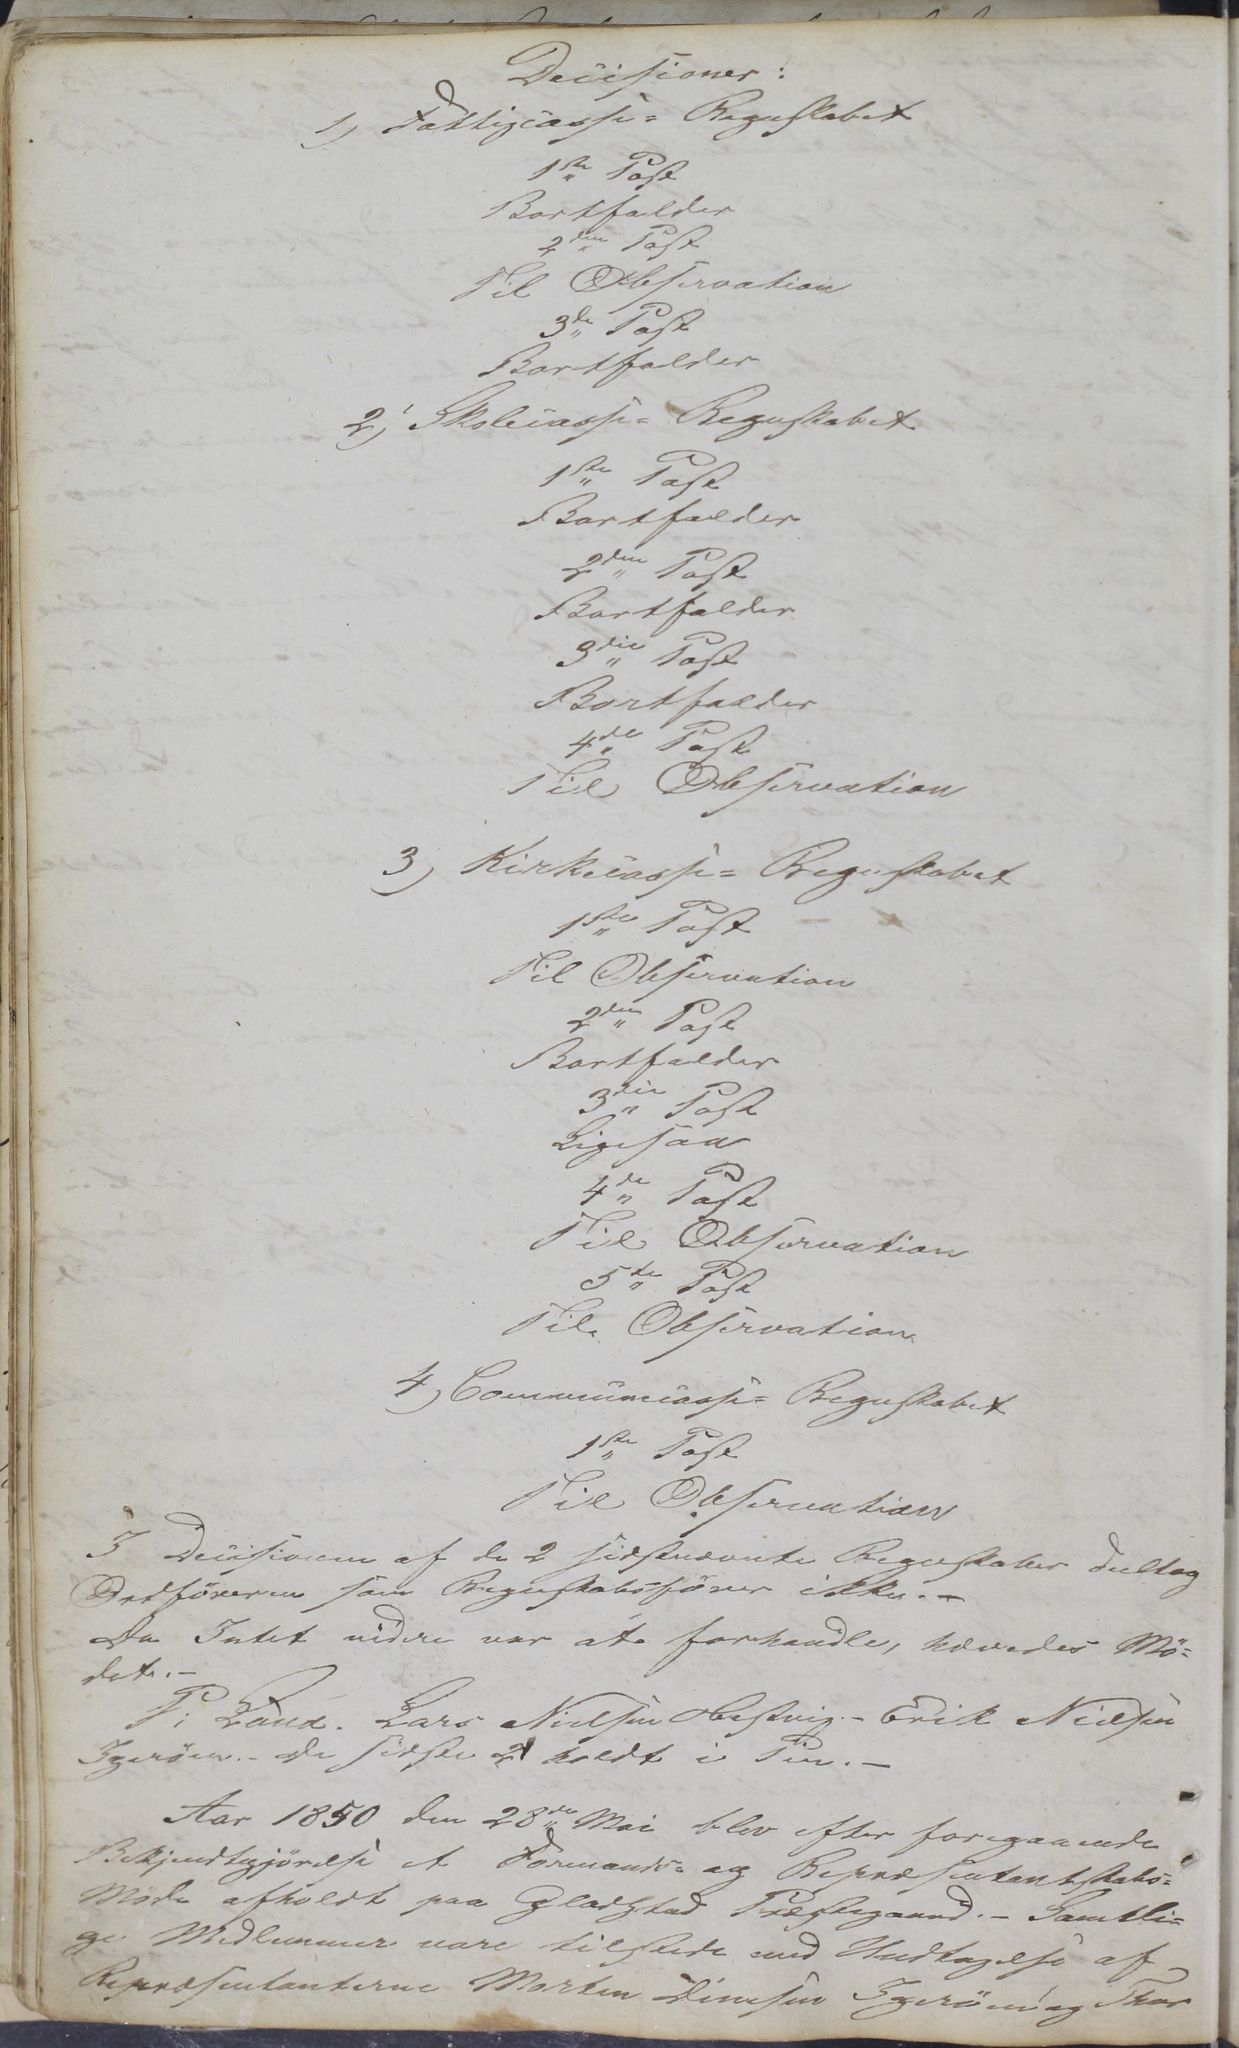 Decisioner:
1) Fattigcasse= Regnskabet
1ste Post
Bortfalder
2den Post
Til Observation
3de Post
Bortfalder
2) Skolecasse= Regnskabet
1ste Post
Bortfalder
2den Post
Bortfalder
3die Post
Bortfalder
4de Post
Til Observation
3) Kirkecasse= Regnskabet
1ste Post
Til Observation
2den Post
Bortfalder
3die Post
Ligesaa
4de Post
Til Observation
5te Post
Til Observation
4) Communecasse= Regnskabet
1ste Post
Til Observation
I Decisionen af de 2 sidstnævnte Regnskaber deeltog
Ordföreren som Regnskabsförer ikke.-
Da Intet videre var at forhandle, hævedes Mö=
det.-
P: Lund. Lars Nielsen Hestvig.- Erik Nielsen
Igeröen.- de sidste 2 holdt i Pen.-
Aar 1850 den 28de Mai blev efter foregaaende
Bekjendtgjörelse et Formands= og Repræsentantskabs=
Möde afholdt paa Gladstad Præstegaard.- Samtli=
ge Medlemmer vare tilstede med Undtagelse af
Repræsentanterne Morten Dinesen Igeröen og Thor